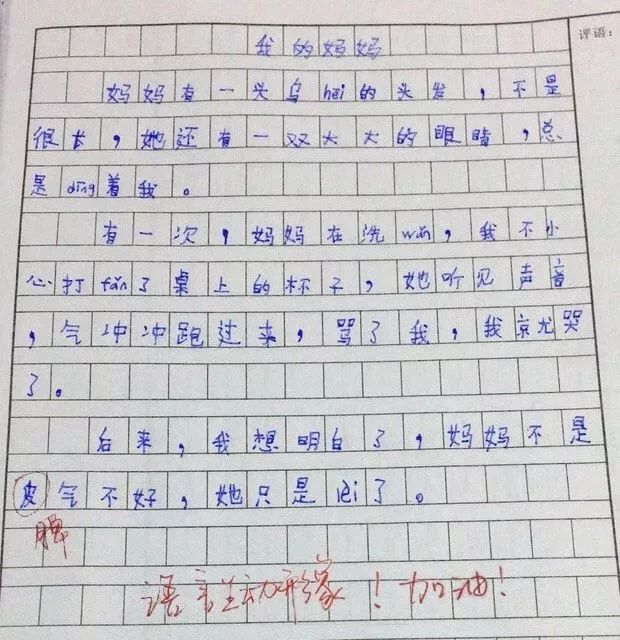 评语：
我的妈妈
妈妈有一头乌hēi的头发，不是
很长，她还有一双大大的眼睛，总
是dīng着我。
有一次，妈妈在洗wǎn，我不小
心打fān了桌上的杯子，她听见声音
，气冲冲跑过来，骂了我，我京尤哭
了。
后来，我想明白了，妈妈不是
皮气不好，她只是lèi了。
脾
语言生动形象！加油！